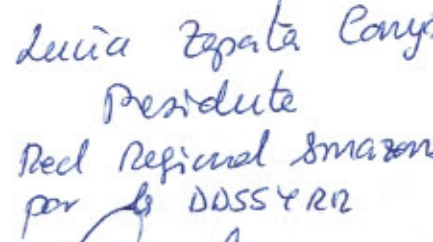 Lucía Zapata
Presidenta
Red Regional Amazon
por la DDSSYRR